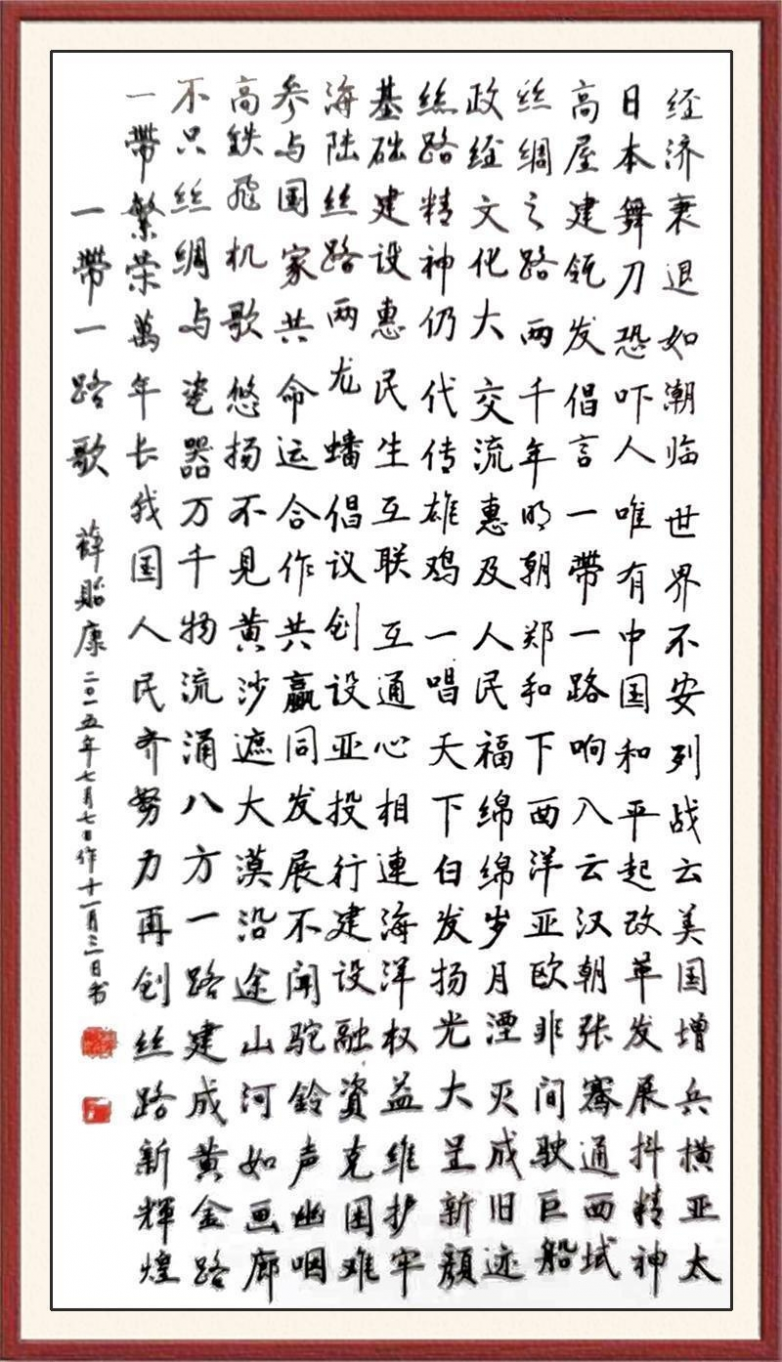 经济衰退如潮临世界不安列战云美国增兵横亚太
日本舞刀恐吓人唯有中国和平起改革发展抖精神
高屋建瓴发倡言一帶一路响入云汉朝张骞通西域
丝绸之路两千年明朝郑和下西洋亚欧非间驶巨船
政经文化大交流惠及人民福绵绵岁月湮灭成旧迹
丝路精神仍代传雄鸡一唱天下白发扬光大呈新颜
基础建设惠民生互联互通心相連海洋权益维护牢
海陆丝路两龙蟠倡议创设亚投行建设融資克困难
参与国家共命运合作共赢同发展不闻驼铃声幽咽
高鉄飛机歌悠扬不见黄沙遮大漠沿途山河如画廊
不只丝绸与瓷器万千物流涌八方一路建成黄金路
一帶繁荣萬年长我国人民齐努力再创丝路新輝煌
一帶一路歌 薛貽康二〇一五年七月七日作十一月三日书